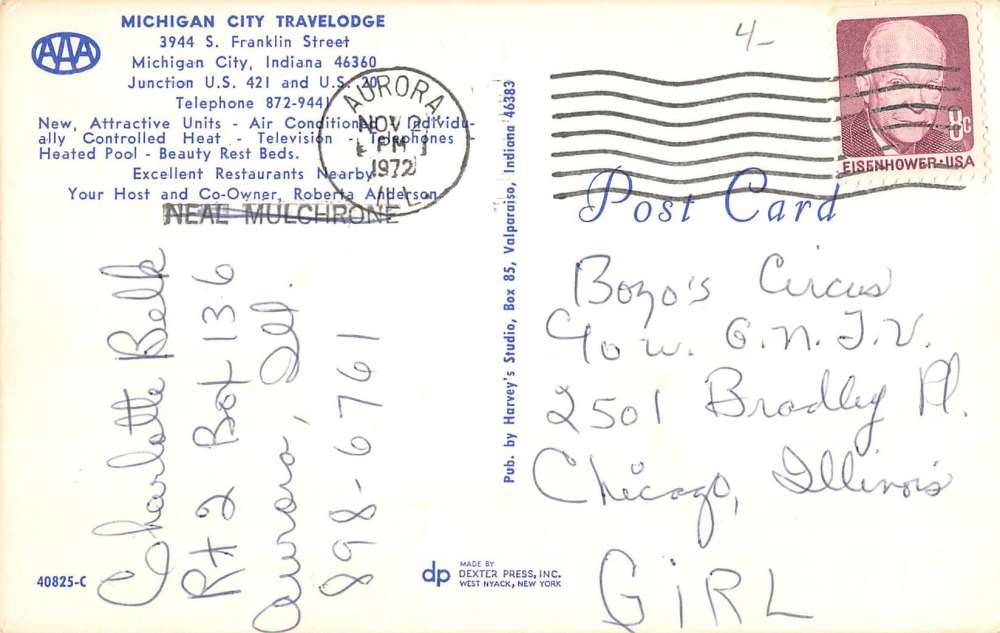 AAA
MICHIGAN CITY TRAVELODGE
3944 S. Franklin Street
Michigan City, Indiana 46360
Junction U.S. 421 and U.S. 20
Telephone 872-9441
New, Attractive Units - Air Conditioned - Individu-
ally Controlled Heat - Television - Telephones -
Heated Pool - Beauty Rest Beds.
Excellent Restaurants Nearby
Your Host and Co-Owner, Roberta Anderson
NEAL MULCHRONE
AURORA
NOV 2
PM
1972
ILL
4-
8c
EISENHOWER·USA
Post Card
Pub. by Harvey's Studio, Box 85, Valparaiso, Indiana 46383
Charlotte Belk
Rt 2 Box 136
Aurora, Ill.
898-6761
Bozo's Circus
℅ W. G.N.T.V.
2501 Bradley Pl.
Chicago, Illinois
GiRL
40825-C
dp
MADE BY
DEXTER PRESS, INC.
WEST NYACK, NEW YORK